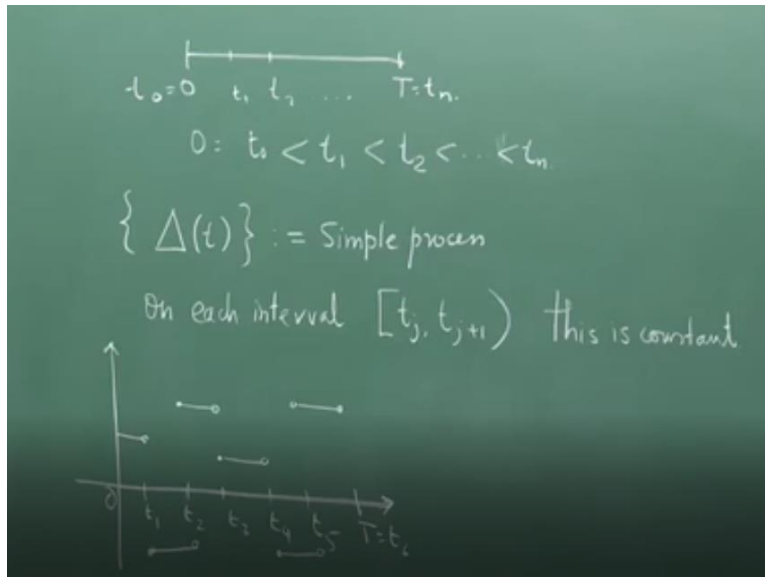 t₀=0 t₁ t₂ ... T=tₙ.
0 = t₀ < t₁ < t₂ < ... < tₙ
{ Δ(t) } := Simple process
On each interval [tⱼ, tⱼ₊₁) this is constant.
0 t₁ t₂ t₃ t₄ t₅ T=t₆